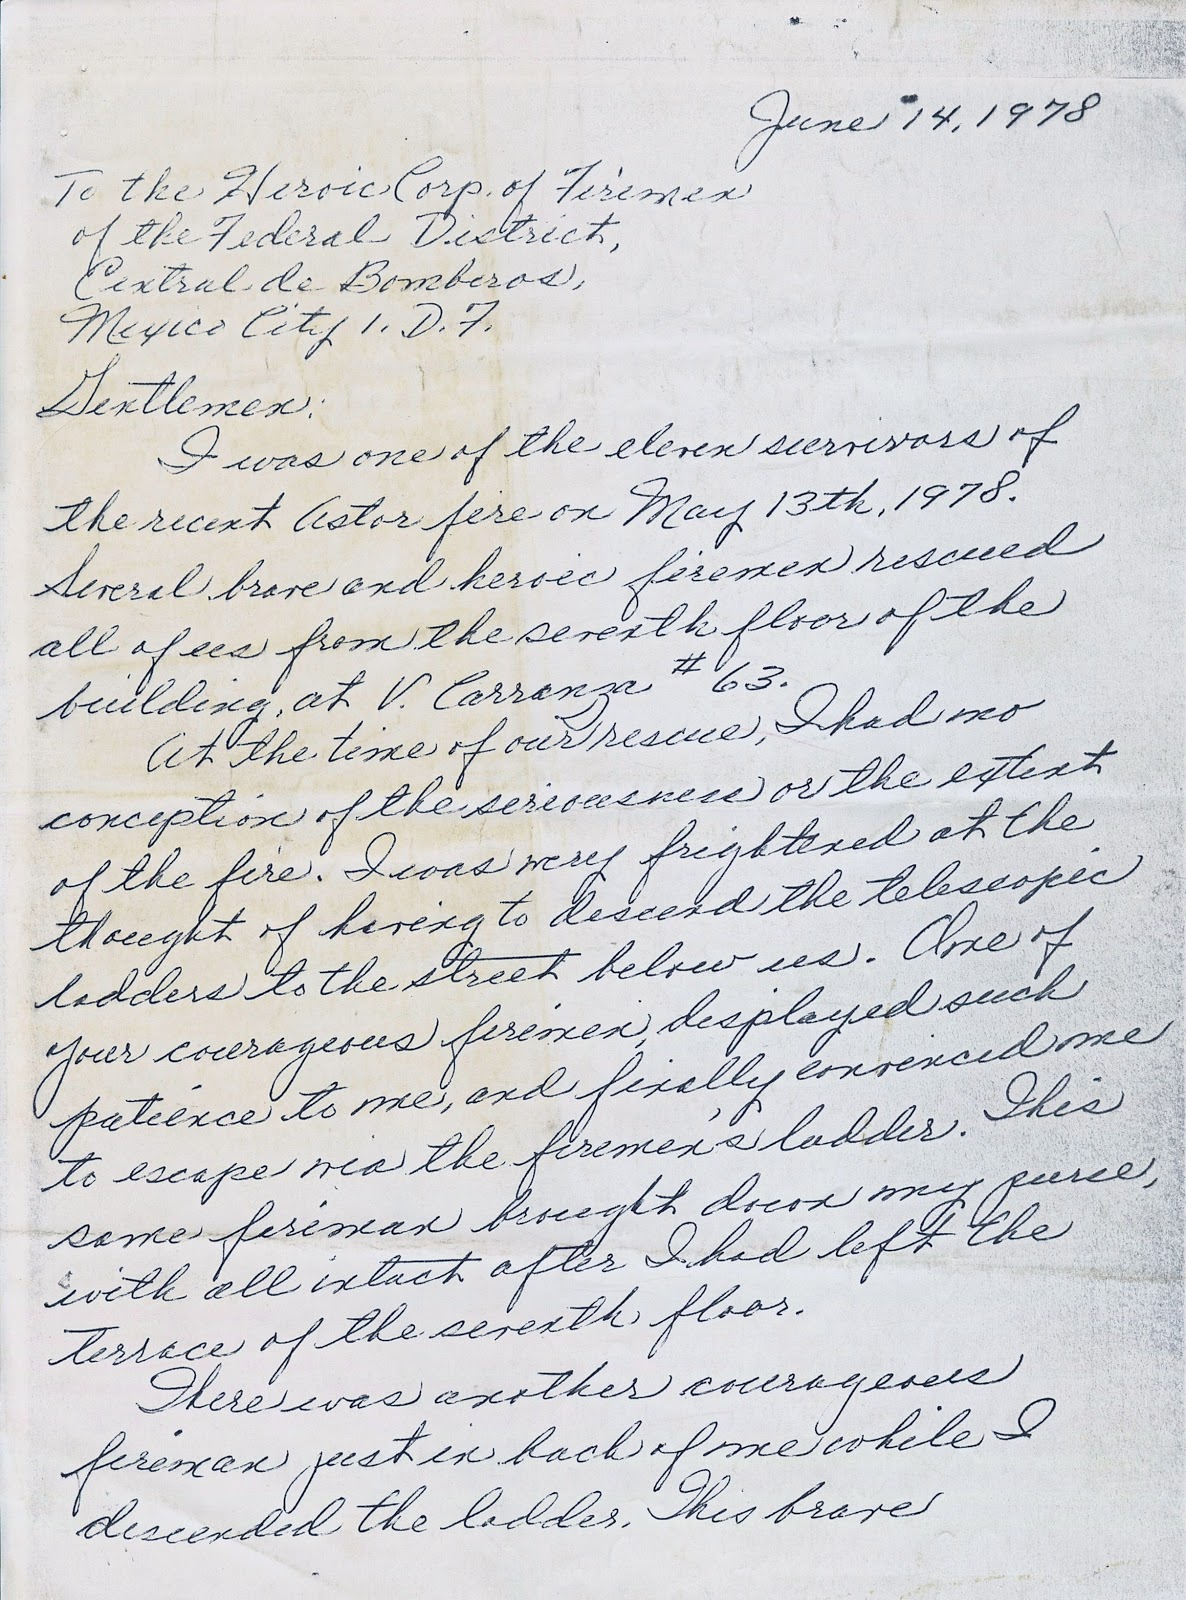 June 14, 1978
To the Heroic Corp. of Firemen
of the Federal District,
Central de Bomberos,
Mexico City 1. D.F.
Gentlemen:
I was one of the eleven survivors of
the recent Astor fire on May 13th, 1978.
Several brave and heroic firemen rescued
all of us from the seventh floor of the
building, at V. Carranza # 63.
At the time of our rescue, I had no
conception of the seriousness or the extent
of the fire. I was very frightened at the
thought of having to descend the telescopic
ladders to the street below us. One of
your courageous firemen, displayed such
patience to me, and finally convinced me
to escape via the firemen's ladder. This
same fireman brought down my purse,
with all intact after I had left the
terrace of the seventh floor.
There was another courageous
fireman just in back of me while I
descended the ladder. This brave